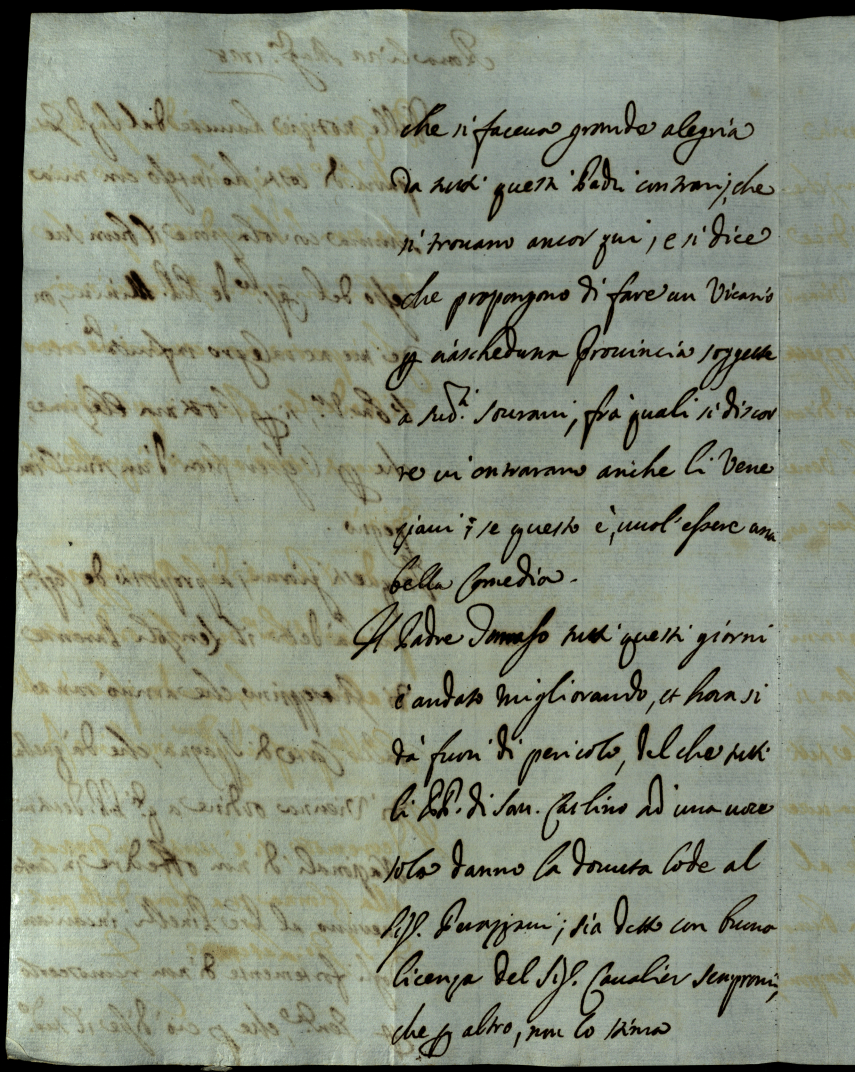 che si faceua grande alegria
da tutti questi Padri contrarij, che
si trouano ancor qui, e si dice
che propongono di fare un Vicario
p ciascheduna Prouincia soggetta
a sud.ti Sourani, frà quali si discor
re ui entrarano anche li Vene
ziani; se questo è, uuol' essere una
bella Comedia.
Il Padre Tomaso tutti questi giorni
è andato migliorando, et hora si
dà fuori di pericolo, del che tutti
li PP. di San. Carlino ad' una uoce
sola danno la douuta lode al
Sig.r ; sia detto con buona
licenza del Sig.r Caualier Semproni,
che p altro, non lo stima